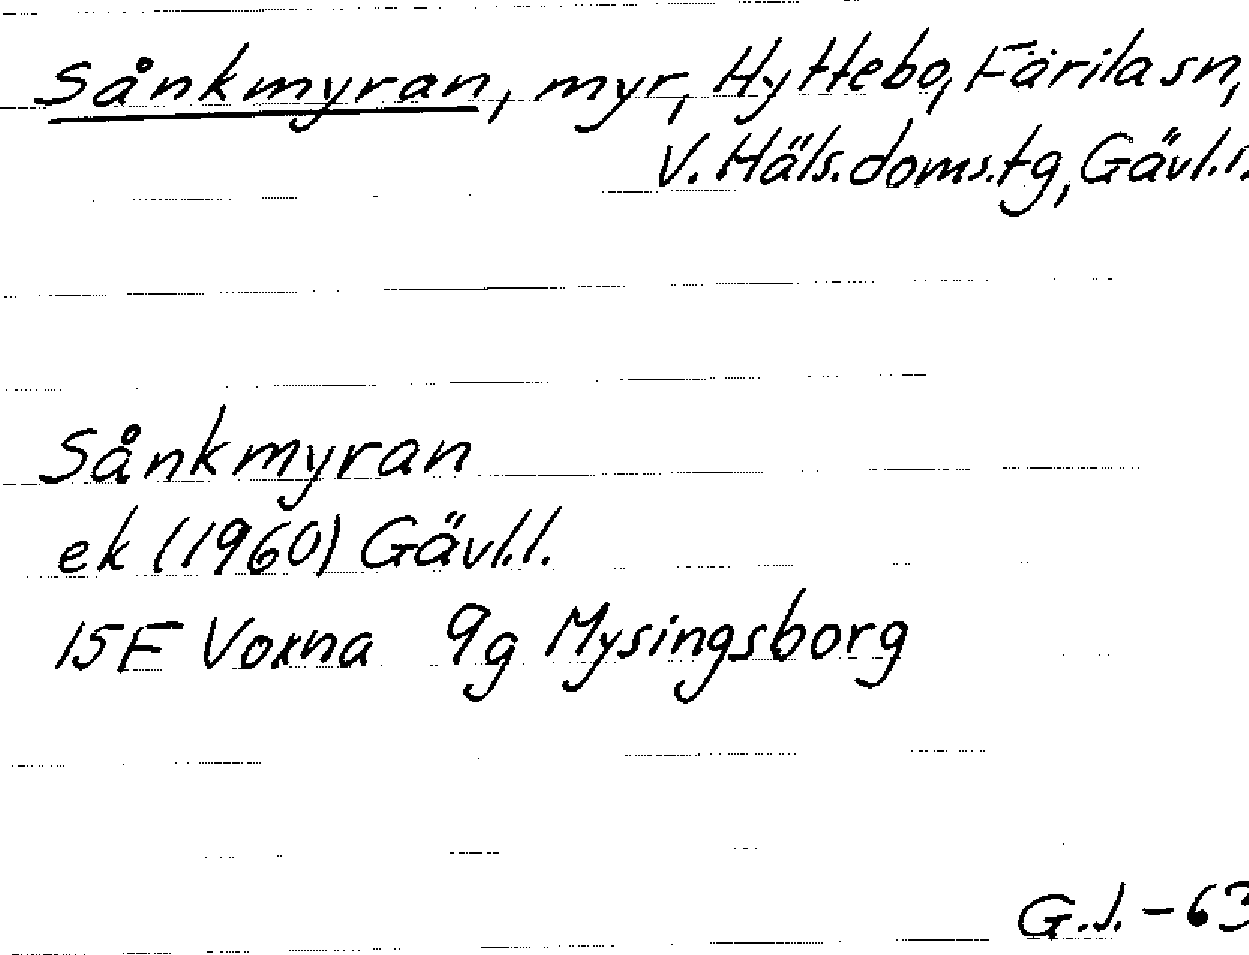 Sånkmyran, myr, Hyttebo, Färila sn,
V. Häls. doms. tg, Gävl. l.
Sånkmyran
ek (1960) Gävl. l.
15F Voxna 9g Mysingsborg
G. J. - 63